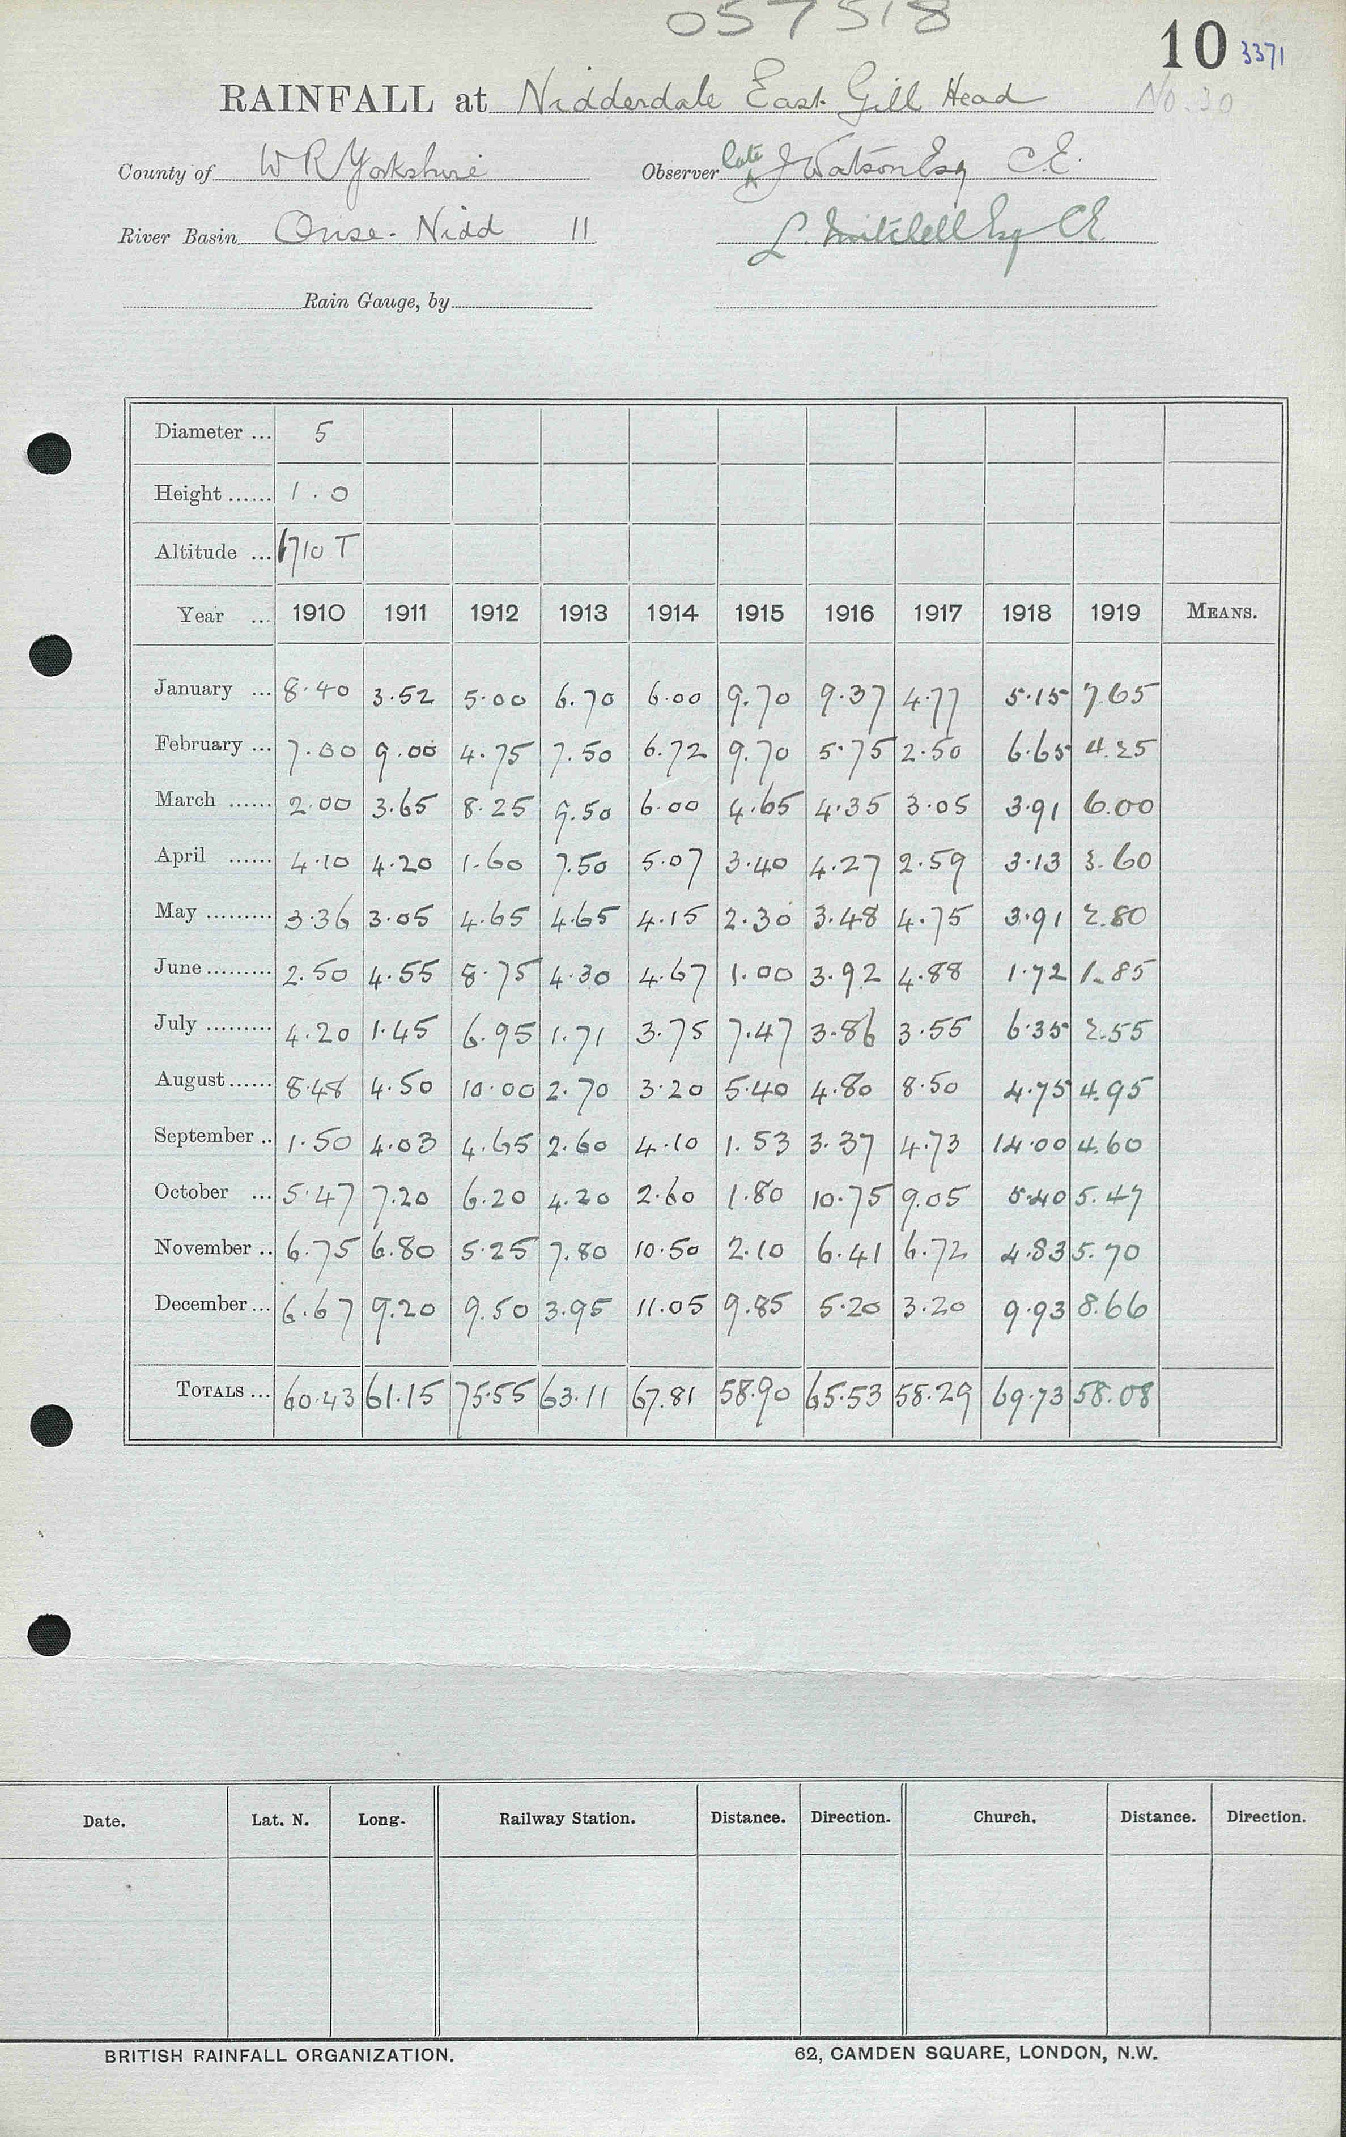 057518
10 3371
RAINFALL at Nidderdale East Gill Head No. 30
County of W R Yorkshire Observer late J Watson Esq C.E.
River Basin Ouse - Nidd 11 L. Mitchell Esq CE
Rain Gauge, by
Diameter ... 5
Height ...... 1.0
Altitude ... 710 T
Year ... 1910 1911 1912 1913 1914 1915 1916 1917 1918 1919 MEANS.
January ... 8.40 3.52 5.00 6.70 6.00 9.70 9.37 4.77 5.15 7.65
February ... 7.00 9.00 4.75 7.50 6.72 9.70 5.75 2.50 6.65 4.25
March ...... 2.00 3.65 8.25 9.50 6.00 4.65 4.35 3.05 3.91 6.00
April ...... 4.10 4.20 1.60 7.50 5.07 3.40 4.27 2.59 3.13 3.60
May ......... 3.36 3.05 4.65 4.65 4.15 2.30 3.48 4.75 3.91 2.80
June ......... 2.50 4.55 8.75 4.30 4.67 1.00 3.92 4.88 1.72 1.85
July ......... 4.20 1.45 6.95 1.71 3.75 7.47 3.86 3.55 6.35 2.55
August ...... 8.48 4.50 10.00 2.70 3.20 5.40 4.80 8.50 4.75 4.95
September .. 1.50 4.03 4.65 2.60 4.10 1.53 3.37 4.73 14.00 4.60
October ... 5.47 7.20 6.20 4.20 2.60 1.80 10.75 9.05 5.40 5.47
November .. 6.75 6.80 5.25 7.80 10.50 2.10 6.41 6.72 4.83 5.70
December ... 6.67 9.20 9.50 3.95 11.05 9.85 5.20 3.20 9.93 8.66
TOTALS ... 60.43 61.15 75.55 63.11 67.81 58.90 65.53 58.29 69.73 58.08
Date. Lat. N. Long. Railway Station. Distance. Direction. Church. Distance. Direction.
BRITISH RAINFALL ORGANIZATION. 62, CAMDEN SQUARE, LONDON, N.W.